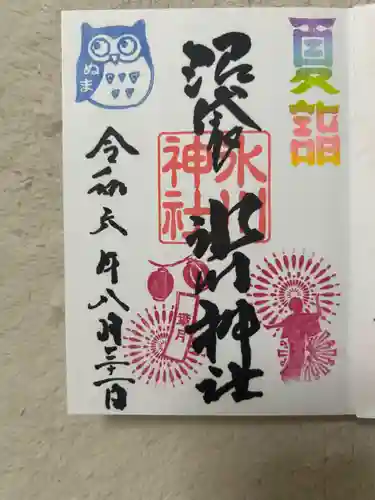 夏詣
沼袋 氷川神社
氷川
神社
葉月
ぬま
令和元年八月三十一日